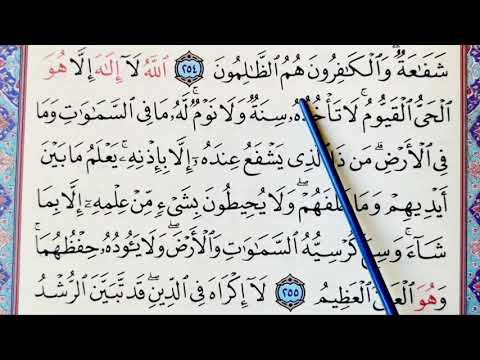 شَفَٰعَةٌۗ وَٱلۡكَٰفِرُونَ هُمُ ٱلظَّٰلِمُونَ ٢٥٤ ٱللَّهُ لَآ إِلَٰهَ إِلَّا هُوَ
ٱلۡحَيُّ ٱلۡقَيُّومُۚ لَا تَأۡخُذُهُۥ سِنَةٞ وَلَا نَوۡمٞۚ لَّهُۥ مَا فِي ٱلسَّمَٰوَٰتِ وَمَا
فِي ٱلۡأَرۡضِۗ مَن ذَا ٱلَّذِي يَشۡفَعُ عِندَهُۥٓ إِلَّا بِإِذۡنِهِۦۚ يَعۡلَمُ مَا بَيۡنَ
أَيۡدِيهِمۡ وَمَا خَلۡفَهُمۡۖ وَلَا يُحِيطُونَ بِشَيۡءٖ مِّنۡ عِلۡمِهِۦٓ إِلَّا بِمَا
شَآءَۚ وَسِعَ كُرۡسِيُّهُ ٱلسَّمَٰوَٰتِ وَٱلۡأَرۡضَۖ وَلَا يَـُٔودُهُۥ حِفۡظُهُمَاۚ
وَهُوَ ٱلۡعَلِيُّ ٱلۡعَظِيمُ ٢٥٥ لَآ إِكۡرَاهَ فِي ٱلدِّينِۖ قَد تَّبَيَّنَ ٱلرُّشۡدُ